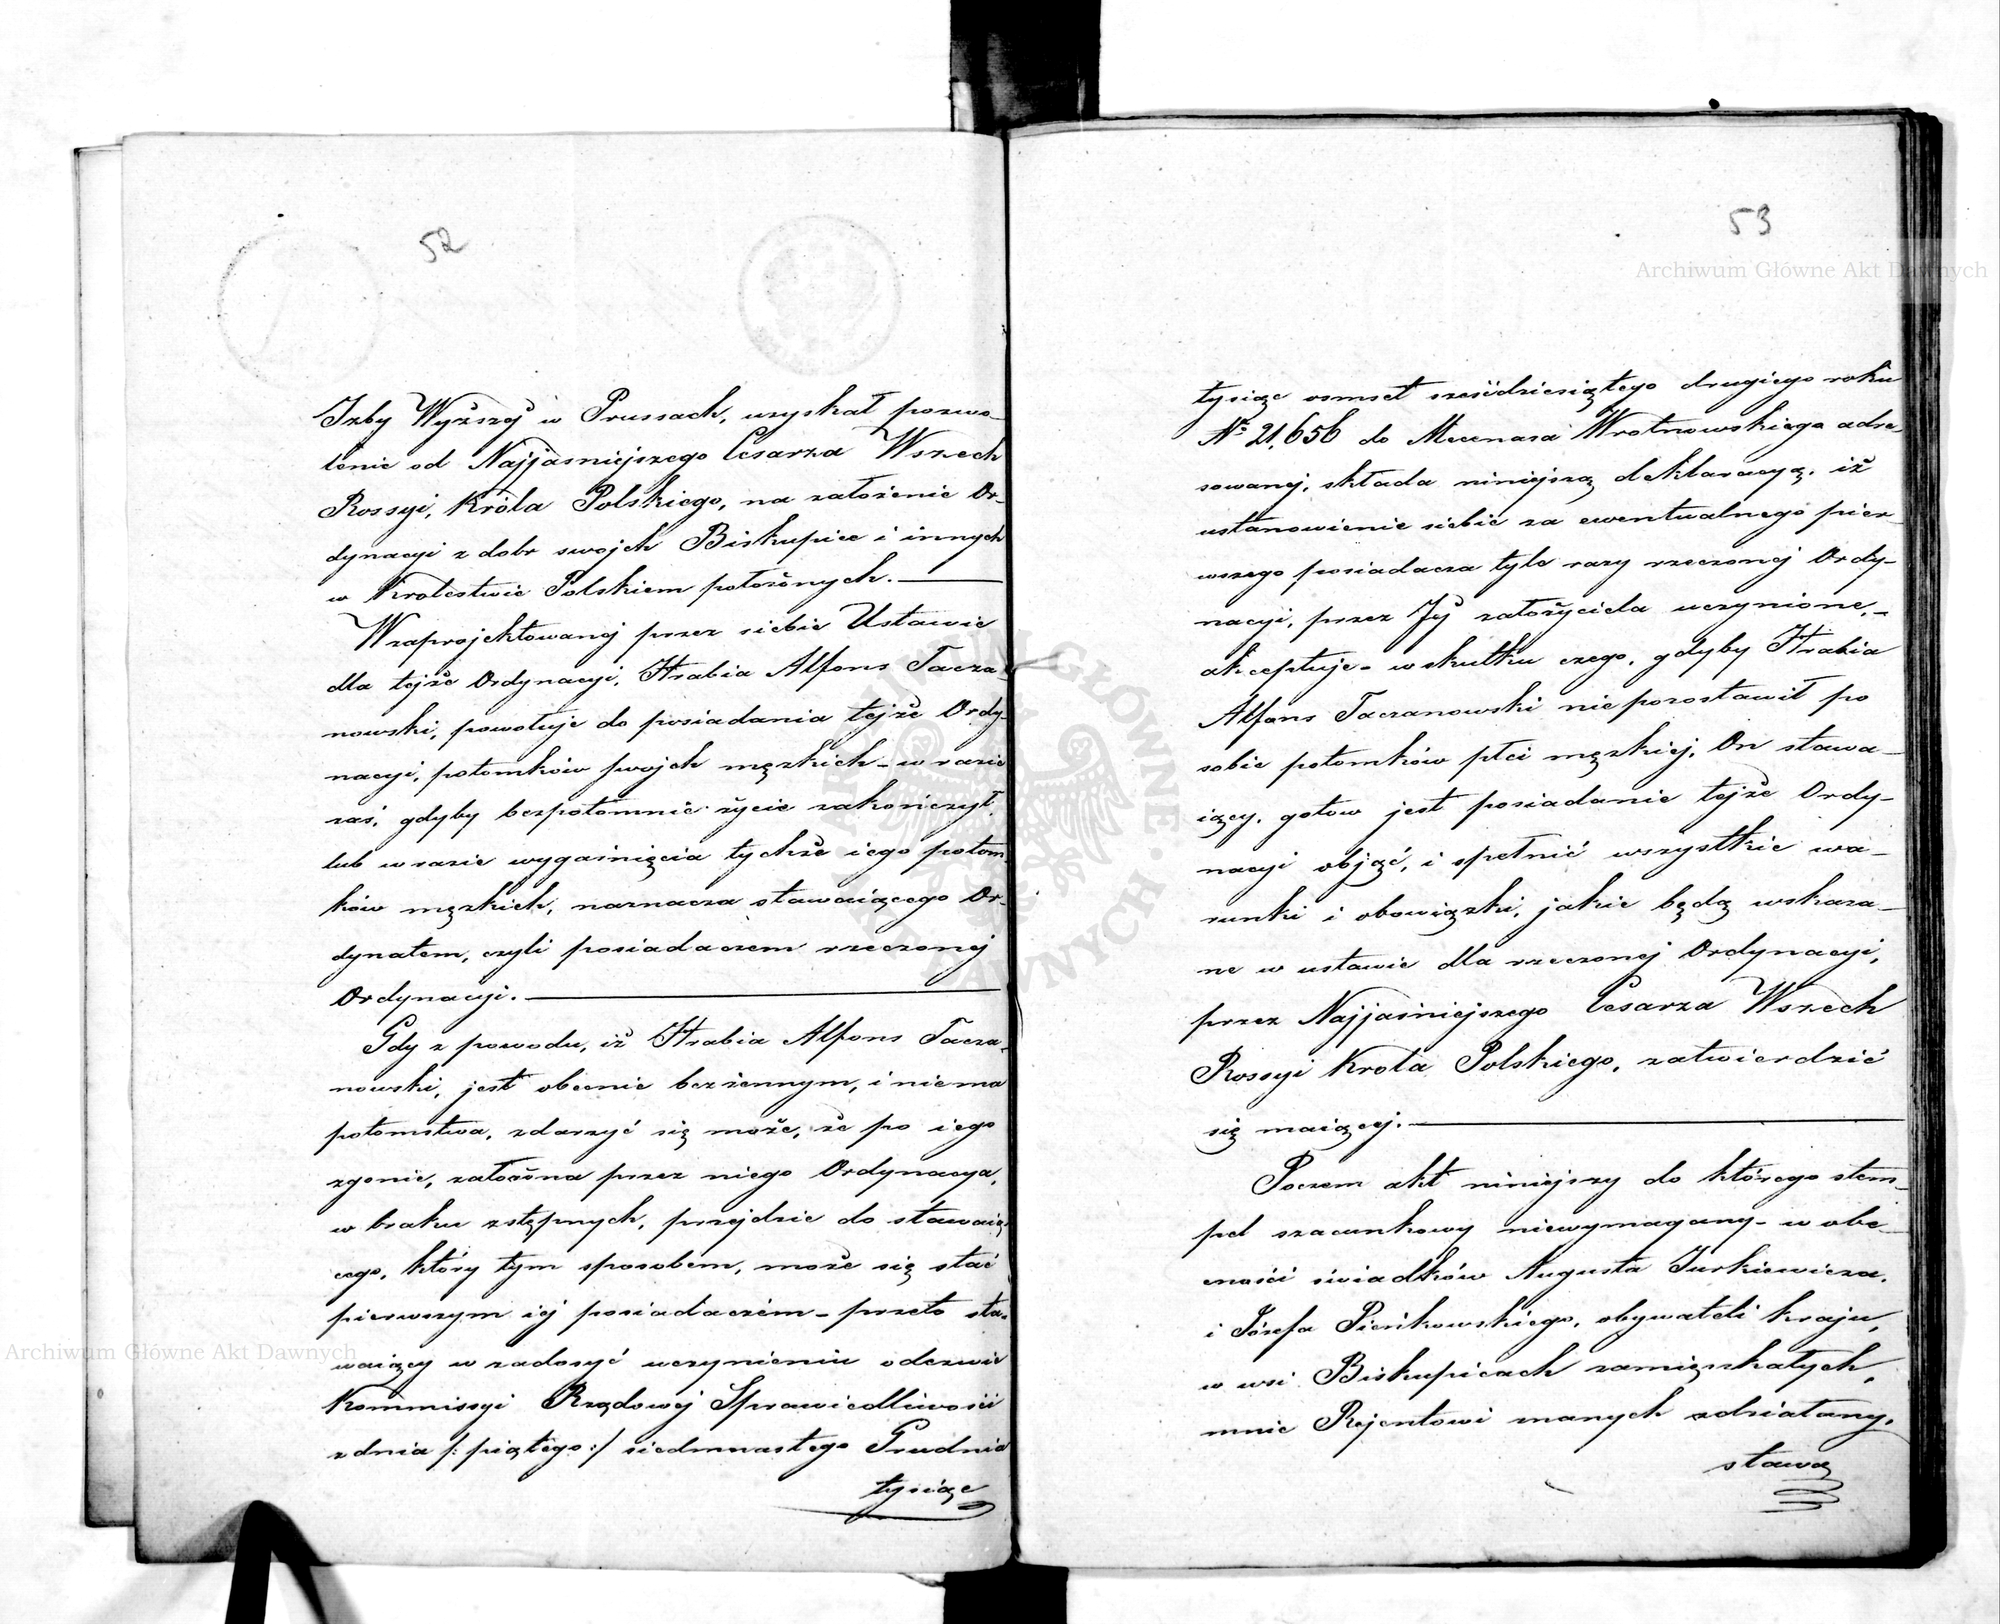 52
Izby Wyższéj w Prussach, uzyskał pozwo-
lenie od Najjasniejszego Cesarza Wszech
Rossyi, Króla Polskiego, na założenie Or-
dynacyi z dobr swojch Biskupice i innych
w Krolestwie Polskiem położonych.
W zaprojektowanej przez siebie Ustawie
dla tejże Ordynacyi, Hrabia Alfons Tacza-
nowski, powołuje do posiadania tejże Ordy-
nacyi, potomków swojch męzkich - w razie
zaś, gdyby bezpotomnie życie zakończył,
lub w razie wygaśnięcia tychże iego potom-
ków męzkich, naznacza stawaiącego Or-
dynatem, czyli posiadaczem rzeczonej
Ordynacyi.
Gdy z powodu, iż Hrabia Alfons Tacza-
nowski, jest obecnie bezżennym, i niema
potomstwa, zdarzyć się może, że po iego
zgonie, założona przez niego Ordynacya,
w braku zstępnych, przejdzie do stawaią-
cego, który tym sposobem, może się stać
pierwszym iéj posiadaczém - przeto sta-
waiący w zadosyć uczynieniu odezwie
Kommissyi Rządowéj Sprawiedliwości
z dnia /: piątego :/ siedmnastego Grudnia
tysiąc
53
tysiąc osmset sześćdziesiątego drugiego roku
No 21,656 do Mecenasa Wrotnowskiego adre-
sowanej, składa niniejszą deklaracyą, iż
ustanowienie siebie za ewentualnego pier-
wszego posiadacza tyle razy rzeczonej Ordy-
nacyi, przez Jéj założyciela uczynione,
akceptuje - w skutku czego, gdyby Hrabia
Alfons Taczanowski niepozostawił po
sobie potomków płci męzkiej, On stawa-
iący, gotow jest posiadanie tejże Ordy-
nacyi objąć, i spełnić wszystkie wa-
runki i obowiązki, jakie będą wskaza-
ne w ustawie dla rzeczonej Ordynacyi,
przez Najjaśniejszego Cesarza Wszech
Rossyi Krola Polskiego, zatwierdzić
się maiącej.
Poczem akt niniejszy do którego stem-
pel szacunkowy niewymagany - w obe-
cności świadków Augusta Jurkiewicza,
i Józefa Pieńkowskiego, obywateli kraju,
w wsi Biskupicach zamięszkałych,
mnie Rejentowi znanych zdziałany,
stawa
Archiwum Główne Akt Dawnych
Archiwum Główne Akt Dawnych
ARCHIWUM GŁÓWNE AKT DAWNYCH